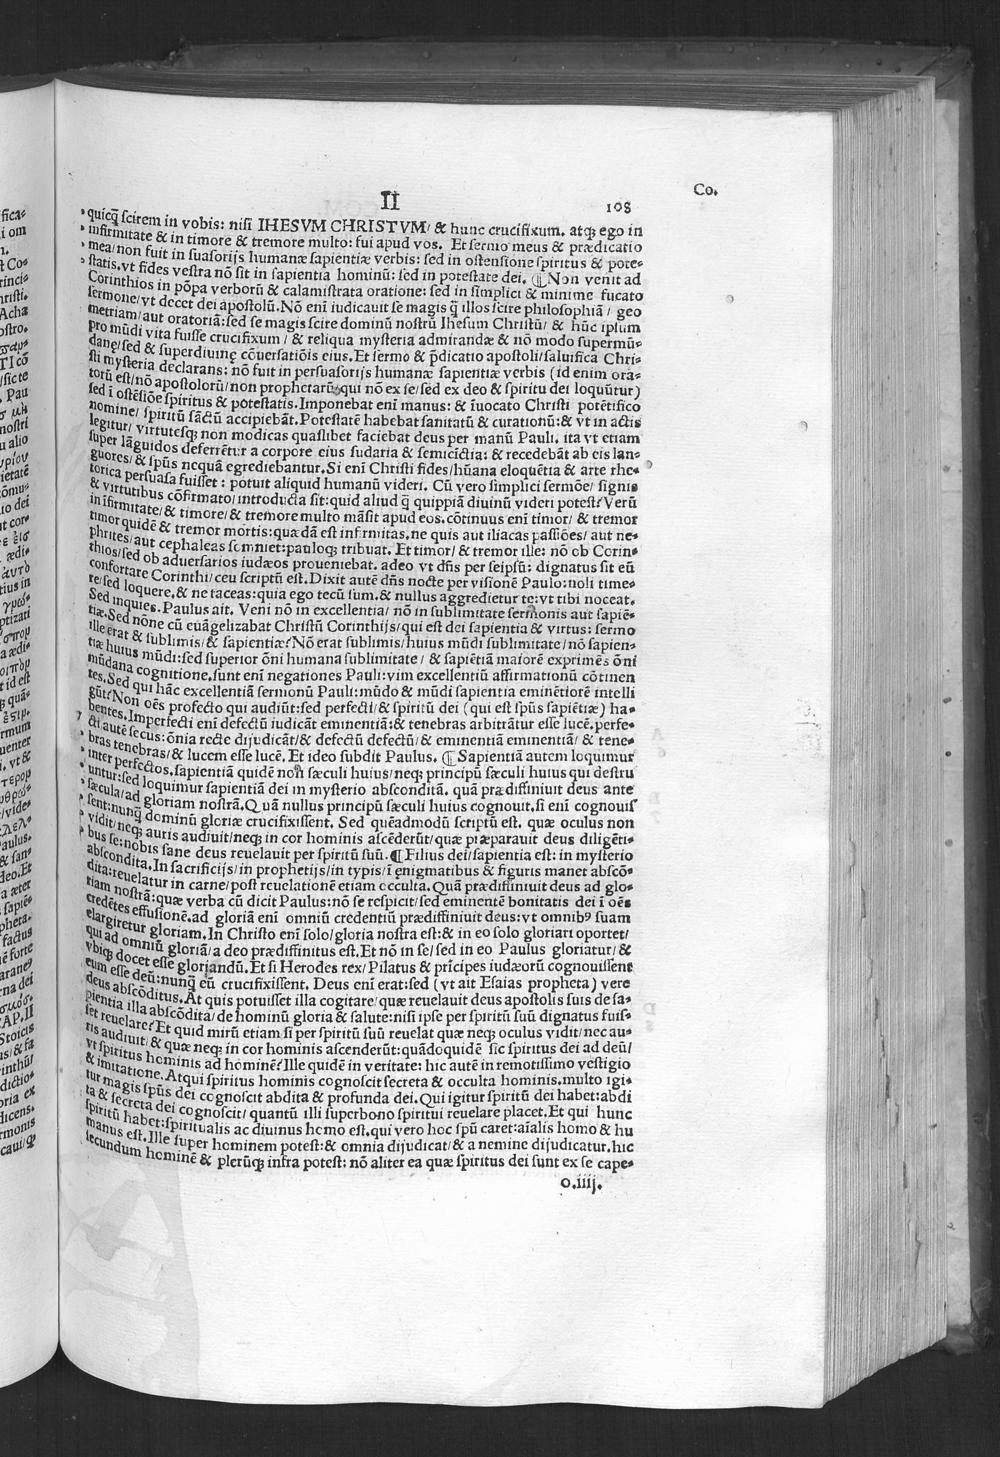 Co.
II
108
quicq̃ scirem in vobis: nisi IHESVM CHRISTVM/ & hunc crucifixum. atq; ego in
infirmitate & in timore & tremore multo: fui apud vos. Et sermo meus & prædicatio
mea/non fuit in suasorijs humanæ sapientiæ verbis: sed in ostensione spiritus & pote-
statis.vt fides vestra nō sit in sapientia hominū: sed in potestate dei. ¶Non venit ad
Corinthios in pōpa verborū & calamistrata oratione: sed in simplici & minime fucato
sermone/vt decet dei apostolū. Nō enī iudicauit se magis q̃ illos scire philosophiā/ geo
metriam/aut oratoriā:sed se magis scire dominū nostrū Ihesum Christū/ & hūc ipsum
pro mūdi vita fuisse crucifixum/ & reliqua mysteria admirandæ & nō modo supermū-
danę/sed & superdiuinę cōuersatiōis eius.Et sermo & p̃dicatio apostoli/saluifica Chri-
sti mysteria declarans: nō fuit in persuasorijs humanæ sapientiæ verbis (id enim ora-
torū est/nō apostolorū/non prophetarū:qui nō ex se/sed ex deo & spiritu dei loquūtur)
sed ī ostēsiōe spiritus & potestatis.Imponebat enī manus: & īuocato Christi potētifico
nomine/ spiritū sāctū accipiebāt.Potestatē habebat sanitatū & curationū:& vt in actis
legitur/ virtutesq; non modicas quaslibet faciebat deus per manū Pauli. ita vt etiam
super lāguidos deferrētur a corpore eius sudaria & semicīctia: & recedebāt ab eis lan-
guores/ & spūs nequā egrediebantur.Si enī Christi fides/hūana eloquētia & arte rhe-
torica persuasa fuisset: potuit aliquid humanū videri. Cū vero simplici sermōe/ signis
& virtutibus cōfirmato/introducta sit:quid aliud q̃ quippiā diuinū videri potest?Verū
in īfirmitate/& timore/& tremore multo māsit apud eos.cōtinuus enī timor/ & tremor
timor quidē & tremor mortis:quædā est infirmitas.ne quis aut iliacas passiōes/aut ne-
phrites/aut cephaleas somniet:pauloq; tribuat. Et timor/ & tremor ille: nō ob Corin-
thios/sed ob aduersarios iudæos proueniebat. adeo vt dñs per seipsū: dignatus sit eū
confortare Corinthi/ceu scriptū est.Dixit autē dñs nocte per visionē Paulo:noli time-
re/sed loquere,& ne taceas:quia ego tecū sum.& nullus aggredietur te:vt tibi noceat.
Sed inquies. Paulus ait. Veni nō in excellentia/ nō in sublimitate sermonis aut sapiē-
tiæ.Sed nōne cū euāgelizabat Christū Corinthijs/qui est dei sapientia & virtus: sermo
ille erat & sublimis/& sapientiæ?Nō erat sublimis/huius mūdi sublimitate/nō sapien-
tiæ huius mūdi:sed superior ōni humana sublimitate/ & sapiētiā maiorē exprimēs ōni
mūdana cognitione.sunt enī negationes Pauli:vim excellentiū affirmationū cōtinen
tes.Sed qui hāc excellentiā sermonū Pauli:mūdo & mūdi sapientia eminētiorē intelli
gūt?Non oēs profecto qui audiūt:sed perfecti/& spiritū dei (qui est spūs sapiētiæ) ha-
7 bentes.Imperfecti enī defectū iudicāt eminentiā:& tenebras arbitrātur esse lucē.perfe-
cti autē secus:ōnia recte dijudicāt/& defectū defectū/& eminentiā eminentiā/ & tene-
bras tenebras/& lucem esse lucē. Et ideo subdit Paulus. ¶Sapientiā autem loquimur
inter perfectos.sapientiā quidē non sæculi huius/neq; principū sæculi huius qui destru
untur:sed loquimur sapientiā dei in mysterio abscondità. quā prædiffiniuit deus ante
sæcula/ad gloriam nostrā.Quā nullus principū sæculi huius cognouit.si enī cognouis
sent:nunq̃ dominū gloriæ crucifixissent. Sed quēadmodū scriptū est. quæ oculus non
vidit/neq; auris audiuit/neq; in cor hominis ascēderūt/quæ præparauit deus diligēti-
bus se:nobis sane deus reuelauit per spiritū suū.¶Filius dei/sapientia est: in mysterio
abscondita.In sacrificijs/in prophetijs/in typis/ī ęnigmatibus & figuris manet abscō-
dita:reuelatur in carne/post reuelationē etiam occulta.Quā prædiffiniuit deus ad glo-
riam nostrā:quæ verba cū dicit Paulus:nō se respicit/sed eminentē bonitatis dei ī oēs
credētes effusionē.ad gloriā enī omniū credentiū prædiffiniuit deus:vt omnibꝰ suam
elargiretur gloriam.In Christo enī solo/gloria nostra est:& in eo solo gloriari oportet/
qui ad omniū gloriā/a deo prædiffinitus est.Et nō in se/sed in eo Paulus gloriatur/&
vbiq; docet esse gloriandū.Et si Herodes rex/Pilatus & prīcipes iudæorū cognouissent
eum esse deū:nunq̃ eū crucifixissent. Deus enī erat:sed (vt ait Esaias propheta) vere
deus abscōditus.At quis potuisset illa cogitare/quæ reuelauit deus apostolis suis de sa-
pientia illa abscōdita/de hominū gloria & salute:nisi ipse per spiritū suū dignatus fuis-
set reuelare?Et quid mirū etiam si per spiritū suū reuelat quæ neq; oculus vidit/nec au-
ris audiuit/& quæ neq; in cor hominis ascenderūt:quādoquidē sic spiritus dei ad deū/
vt spiritus hominis ad hominē?Ille quidē in veritate: hic autē in remotissimo vestigio
& imitatione.Atqui spiritus hominis cognoscit secreta & occulta hominis.multo igi-
tur magis spūs dei cognoscit abdita & profunda dei.Qui igitur spiritū dei habet:abdi
ta & secreta dei cognoscit/ quantū illi superbono spiritui reuelare placet.Et qui hunc
spiritū habet:spiritualis ac diuinus homo est.qui vero hoc spū caret:aīalis homo & hu
manus est.Ille super hominem potest:& omnia dijudicat/& a nemine dijudicatur.hic
secundum hominē & plerūq; infra potest: nō aliter ea quæ spiritus dei sunt ex se cape-
o.iiij.